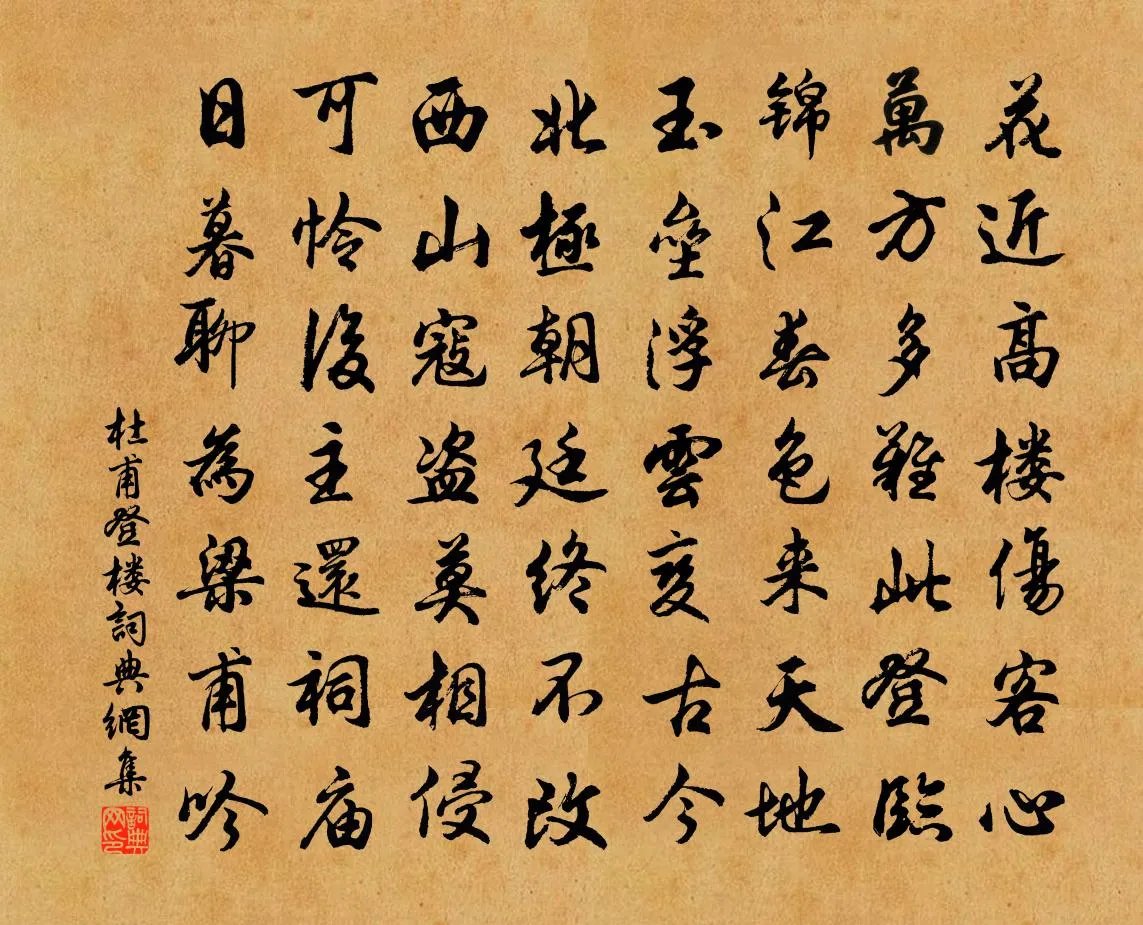 花近高楼傷客心
萬方多難此登臨
锦江春色来天地
玉壘浮雲变古今
北極朝廷终不改
西山寇盗莫相侵
可怜後主還祠庙
日暮聊為梁甫吟
杜甫登楼詞典網集
詞典网印